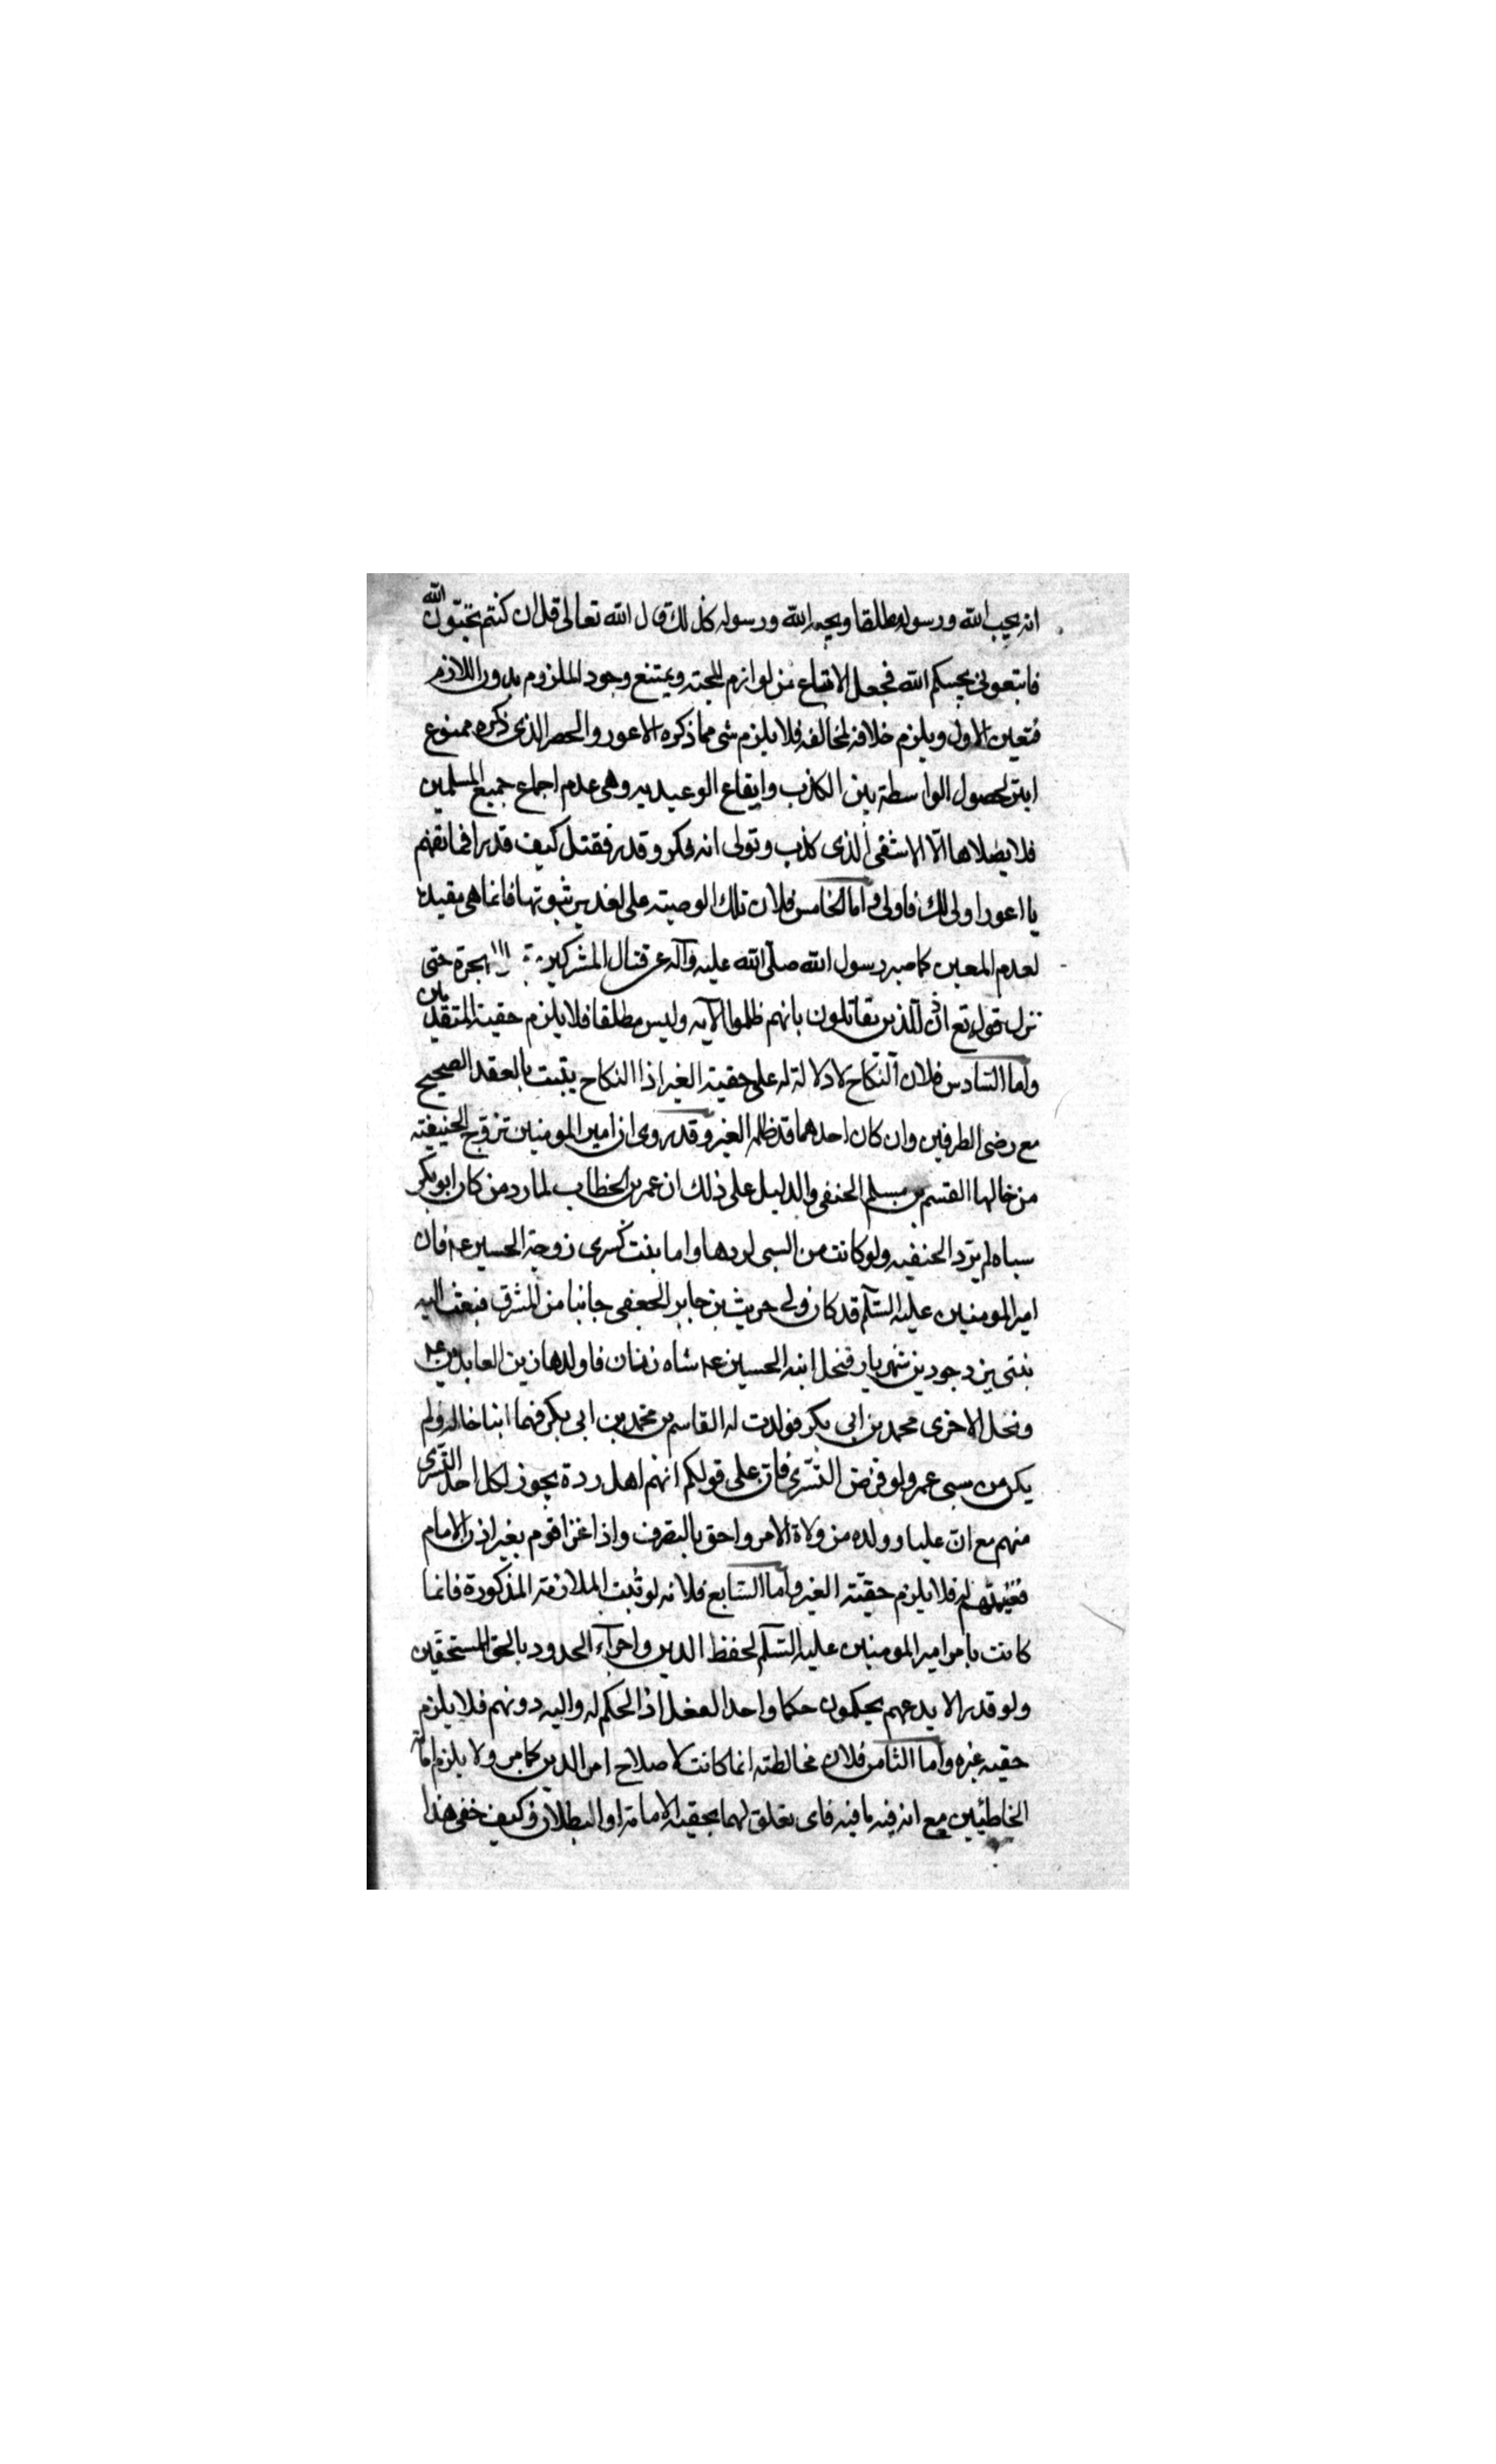 انه يحب الله ورسوله مطلقا ويحبه الله ورسوله كذلك قال الله تعالى قل ان كنتم تحبّون الله
فاتبعوني يحببكم الله فجعل الاتباع من لوازم المحبة ويمتنع وجود الملزوم بدون اللازم
فتعين الاول ويلزم خلافه لمخالفه فلا يلزم شي مما ذكره الاعور والحصر الذي ذكره ممنوع
لحصول الواسطة بين الكذب وايقاع الوعيد به وهي عدم اجماع جميع المسلمين
فلا يصلاها الّا الاشقى الذى كذب وتولى انه فكر وقدر فقتل كيف قدر افما تفهم
يا اعور اولى لك فاولى واما الخامس فلان تلك الوصيته على تقدير ثبوتها فانما هى مقيدة
لعدم المعين كما صبر رسول الله صلّى الله عليه وآله عن قتال المشركين الهجرة حتى
نزل قوله تع اذن للذين يقاتلون بانهم ظلموا الآيه وليس مطلقا فلا يلزم حقية المتقدمين
واما السّادس فلان النّكاح لا دلالة له على حقية الغير اذا النكاح يثبت بالعقد الصحيح
مع رضى الطرفين وان كان احدهما قد ظلمه الغير وقد روى ان امير المومنين تزوّج الحنيفته
من خالها القسم بن مسلم الحنفى والدليل على ذلك ان عمر بن الخطاب لما رد من كان ابو بكر
سباه لم يرّد الحنفيه ولو كانت من السبى لردها واما بنت كسرى زوجة الحسين ع‍ فان
امير المومنين عليه السّلم قد كان ولى حريث بن جابر الجعفى جانبا من المشرق فبعث اليه
بنتى يزدجود بن شهريار فنحل ابنه الحسين ع‍ شاه زنان فاولدها زين العابدين ع‍
ونحل الاخرى محمد بن ابى بكر فولدت له القاسم بن محمد بن ابى بكر فهما ابنا خاله ولم
يكن من سبى عمر ولو فرض التسّرى فان على قولكم انهم اهل ردة يجوز لكل احد التسّرى
منهم مع انّ عليا وولده من ولاة الامر واحق بالتصرف واذا غزا قوم بغير اذن الامام
فغنيمتهم له فلا يلزم حقيّة الغير واما السّابع فلانه لو ثبت الملازمة المذكورة فانما
كانت بامر امير المومنين عليه السّلم لحفظ الدين واجرآء الحدود بالحق للمستحقين
ولو قدر الا يدعهم يحكمون حكما واحدا لفعل اذ الحكم له واليه دونهم فلا يلزم
حقيه غيره واما الثامن فلان مخالطته انما كانت لاصلاح امر الدين كما مر ولا يلزم امامة
الخاطئين مع انه فيه ما فيه فاى تعلق لهما بحقية الامامة او البطلان وكيف خفى هذا